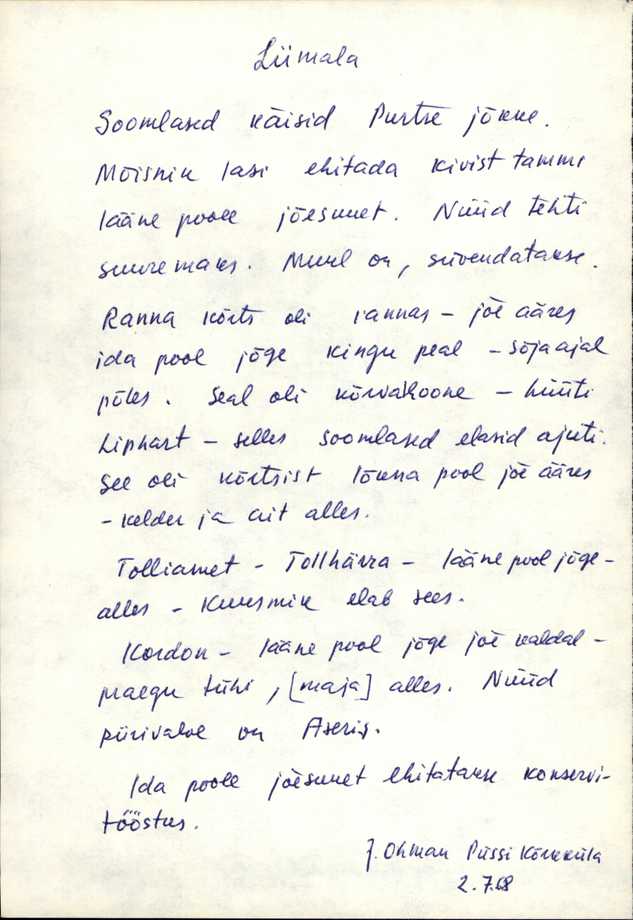 Liimala
Soomlased käisid Purtse jõkke.
Mõisnik lasi ehitada kivist tammi
lääne poole jõesuuet. Nüüd tehti
suuremaks. Muul on, süvendatakse.
Ranna kõrts oli rannas – jõe ääres
ida pool jõge kingu peal – sõjaajal
põles. Seal oli kõrvalhoone – hüüti
Liphart – selles soomlased elasid ajuti.
See oli kõrtsist lõuna pool jõe ääres
– kelder ja ait alles.
Tolliamet – Tollhärra – lääne pool jõge –
alles – Kuusmik elab sees.
Kordon – lääne pool jõge jõe kaldal –
praegu tühi, [maja] alles. Nüüd
piirivalve on Aseris.
Ida poole jõesuuet ehitatakse konservi-
tööstus.
J. Ohman Püssi Kõrkküla
2.7.68